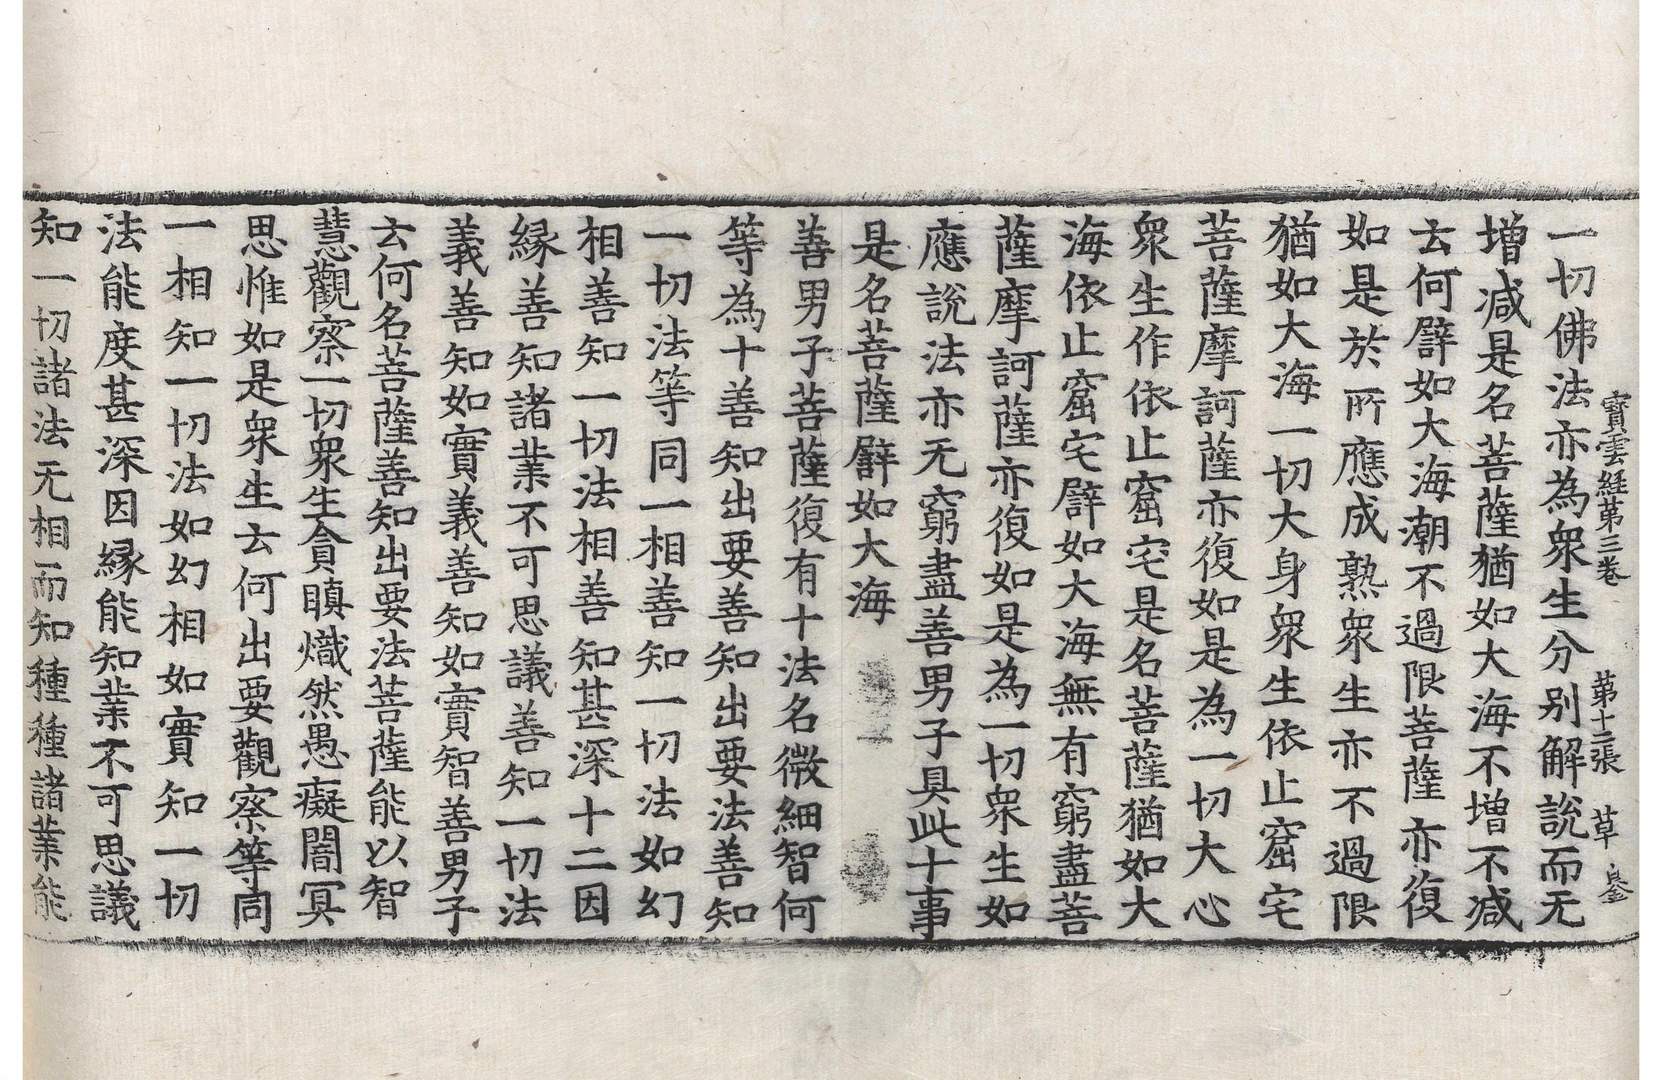 寶雲經第三卷　第十二張　草
一切佛法亦為衆生分別解說而无
增減是名菩薩猶如大海不增不減
云何譬如大海潮不過限菩薩亦復
如是於所應成熟衆生亦不過限
猶如大海一切大身衆生依止窟宅
菩薩摩訶薩亦復如是為一切大心
衆生作依止窟宅是名菩薩猶如大
海依止窟宅譬如大海無有窮盡菩
薩摩訶薩亦復如是為一切衆生如
應說法亦无窮盡善男子具此十事
是名菩薩譬如大海
善男子菩薩復有十法名微細智何
等為十善知出要善知出要法善知
一切法等同一相善知一切法如幻
相善知一切法相善知甚深十二因
縁善知諸業不可思議善知一切法
義善知如實義善知如實智善男子
云何名菩薩善知出要法菩薩能以智
慧觀察一切衆生貪瞋熾然愚癡闇冥
思惟如是衆生云何出要觀察等同
一相知一切法如幻相如實知一切
法能度甚深因縁能知業不可思議
知一切諸法无相而知種種諸業能